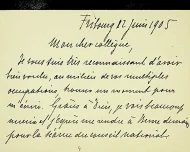 Fribourg 12 juin 1905
Mon cher collègue,
Je vous suis très reconnaissant d'avoir
bien voulu, au milieu de vos multiples
occupations, trouver un moment pour
m'écrire. Grâce à Dieu, je vais beaucoup
mieux et j'espère me rendre à Berne demain
pour la séance du conseil national.